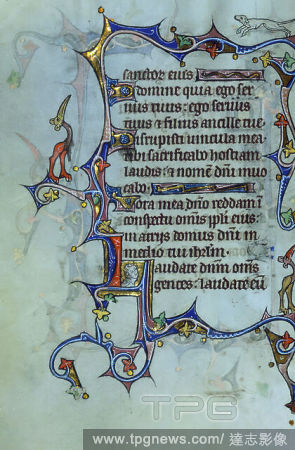 sanctor eius
O domine quia ego ser
uus tuus: ego seruus
tuus et filius ancille tue
Disrupisti uincula mea
tibi sacrificabo hostiam
laudis: et nomen dñi inuo
cabo.
Uota mea dño reddam i
conspectu omis ppli eius:
in atrijs domus dñi in
medio tui ihrlm.
Laudate dnm oms
gentes: laudate eū
TPG
www.tpgnews.com / 達志影像